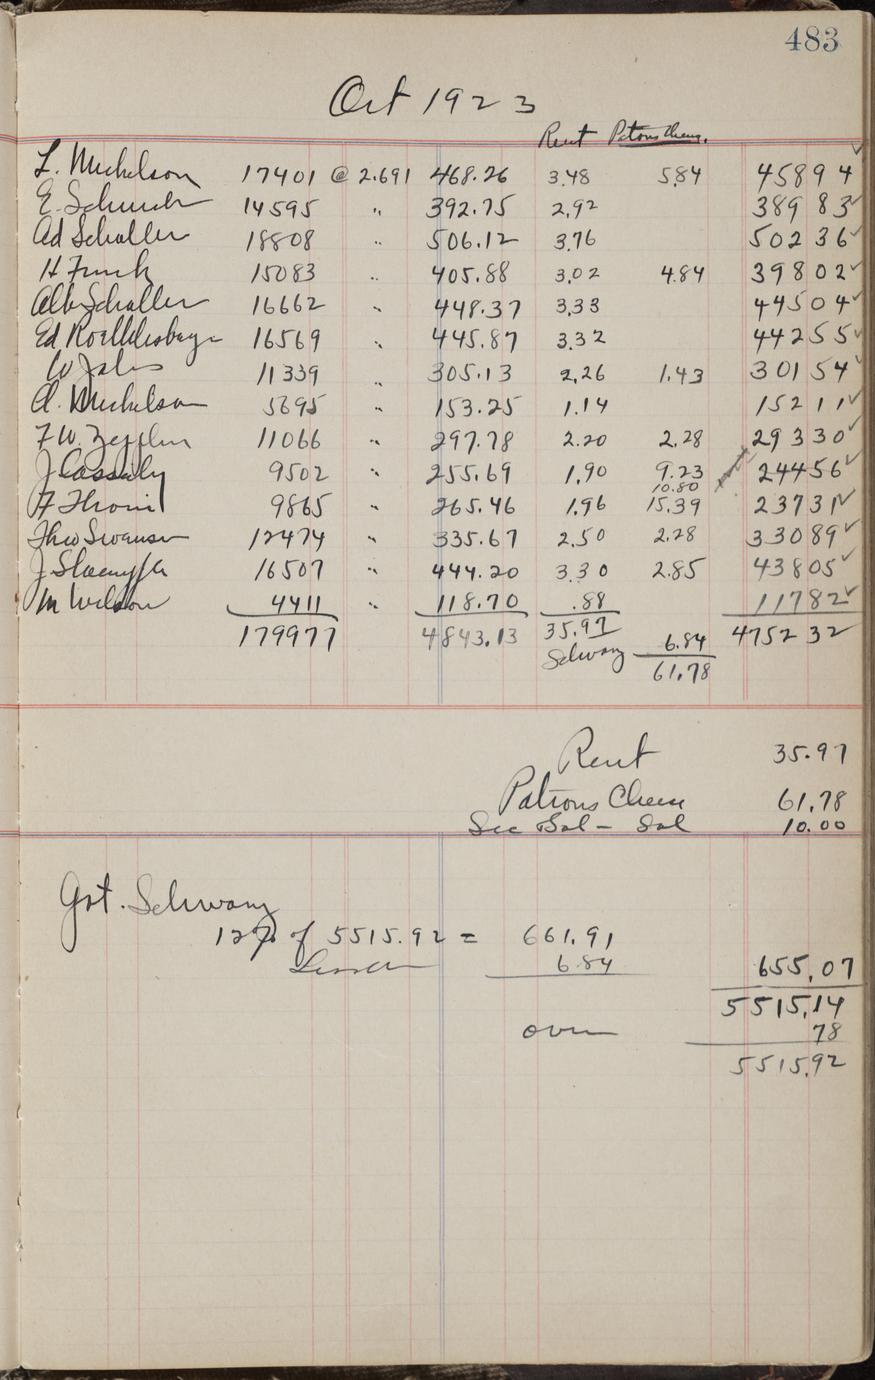 483
Oct 1923
Rent Patrons Chees.
L. Michelson 17401 @ 2.691 468.26 3.48 5.84 458 94 ✓
E. 14595 " 392.75 2.92 389 83 ✓
Ad Schaller 18808 " 506.12 3.76 502 36 ✓
H Funk 15083 " 405.88 3.02 4.84 398 02 ✓
Alb Schaller 16662 " 448.37 3.33 445 04 ✓
Ed 16569 " 445.87 3.32 442 55 ✓
W 11339 " 305.13 2.26 1.43 301 54 ✓
A. Michelson 5695 " 153.25 1.14 152 11 ✓
F.W. 11066 " 297.78 2.20 2.28 293 30 ✓
J Cassaly 9502 " 255.69 1.90 9.23 244 56 ✓
10.80
F 9865 " 265.46 1.96 15.39 237 31 ✓
Theo Swanson 12474 " 335.67 2.50 2.28 330 89 ✓
J 16507 " 444.20 3.30 2.85 438 05 ✓
M Wilson 4411 " 118.70 .88 117 82 ✓
179977 4843.13 35.97 4752 32
Schwanz 6.84
61.78
Rent 35.97
Patrons Cheese 61.78
Sec Bal - Sal 10.00
Got. Schwanz
12% of 5515.92 = 661.91
6.84 655.07
5515.14
over 78
5515.92